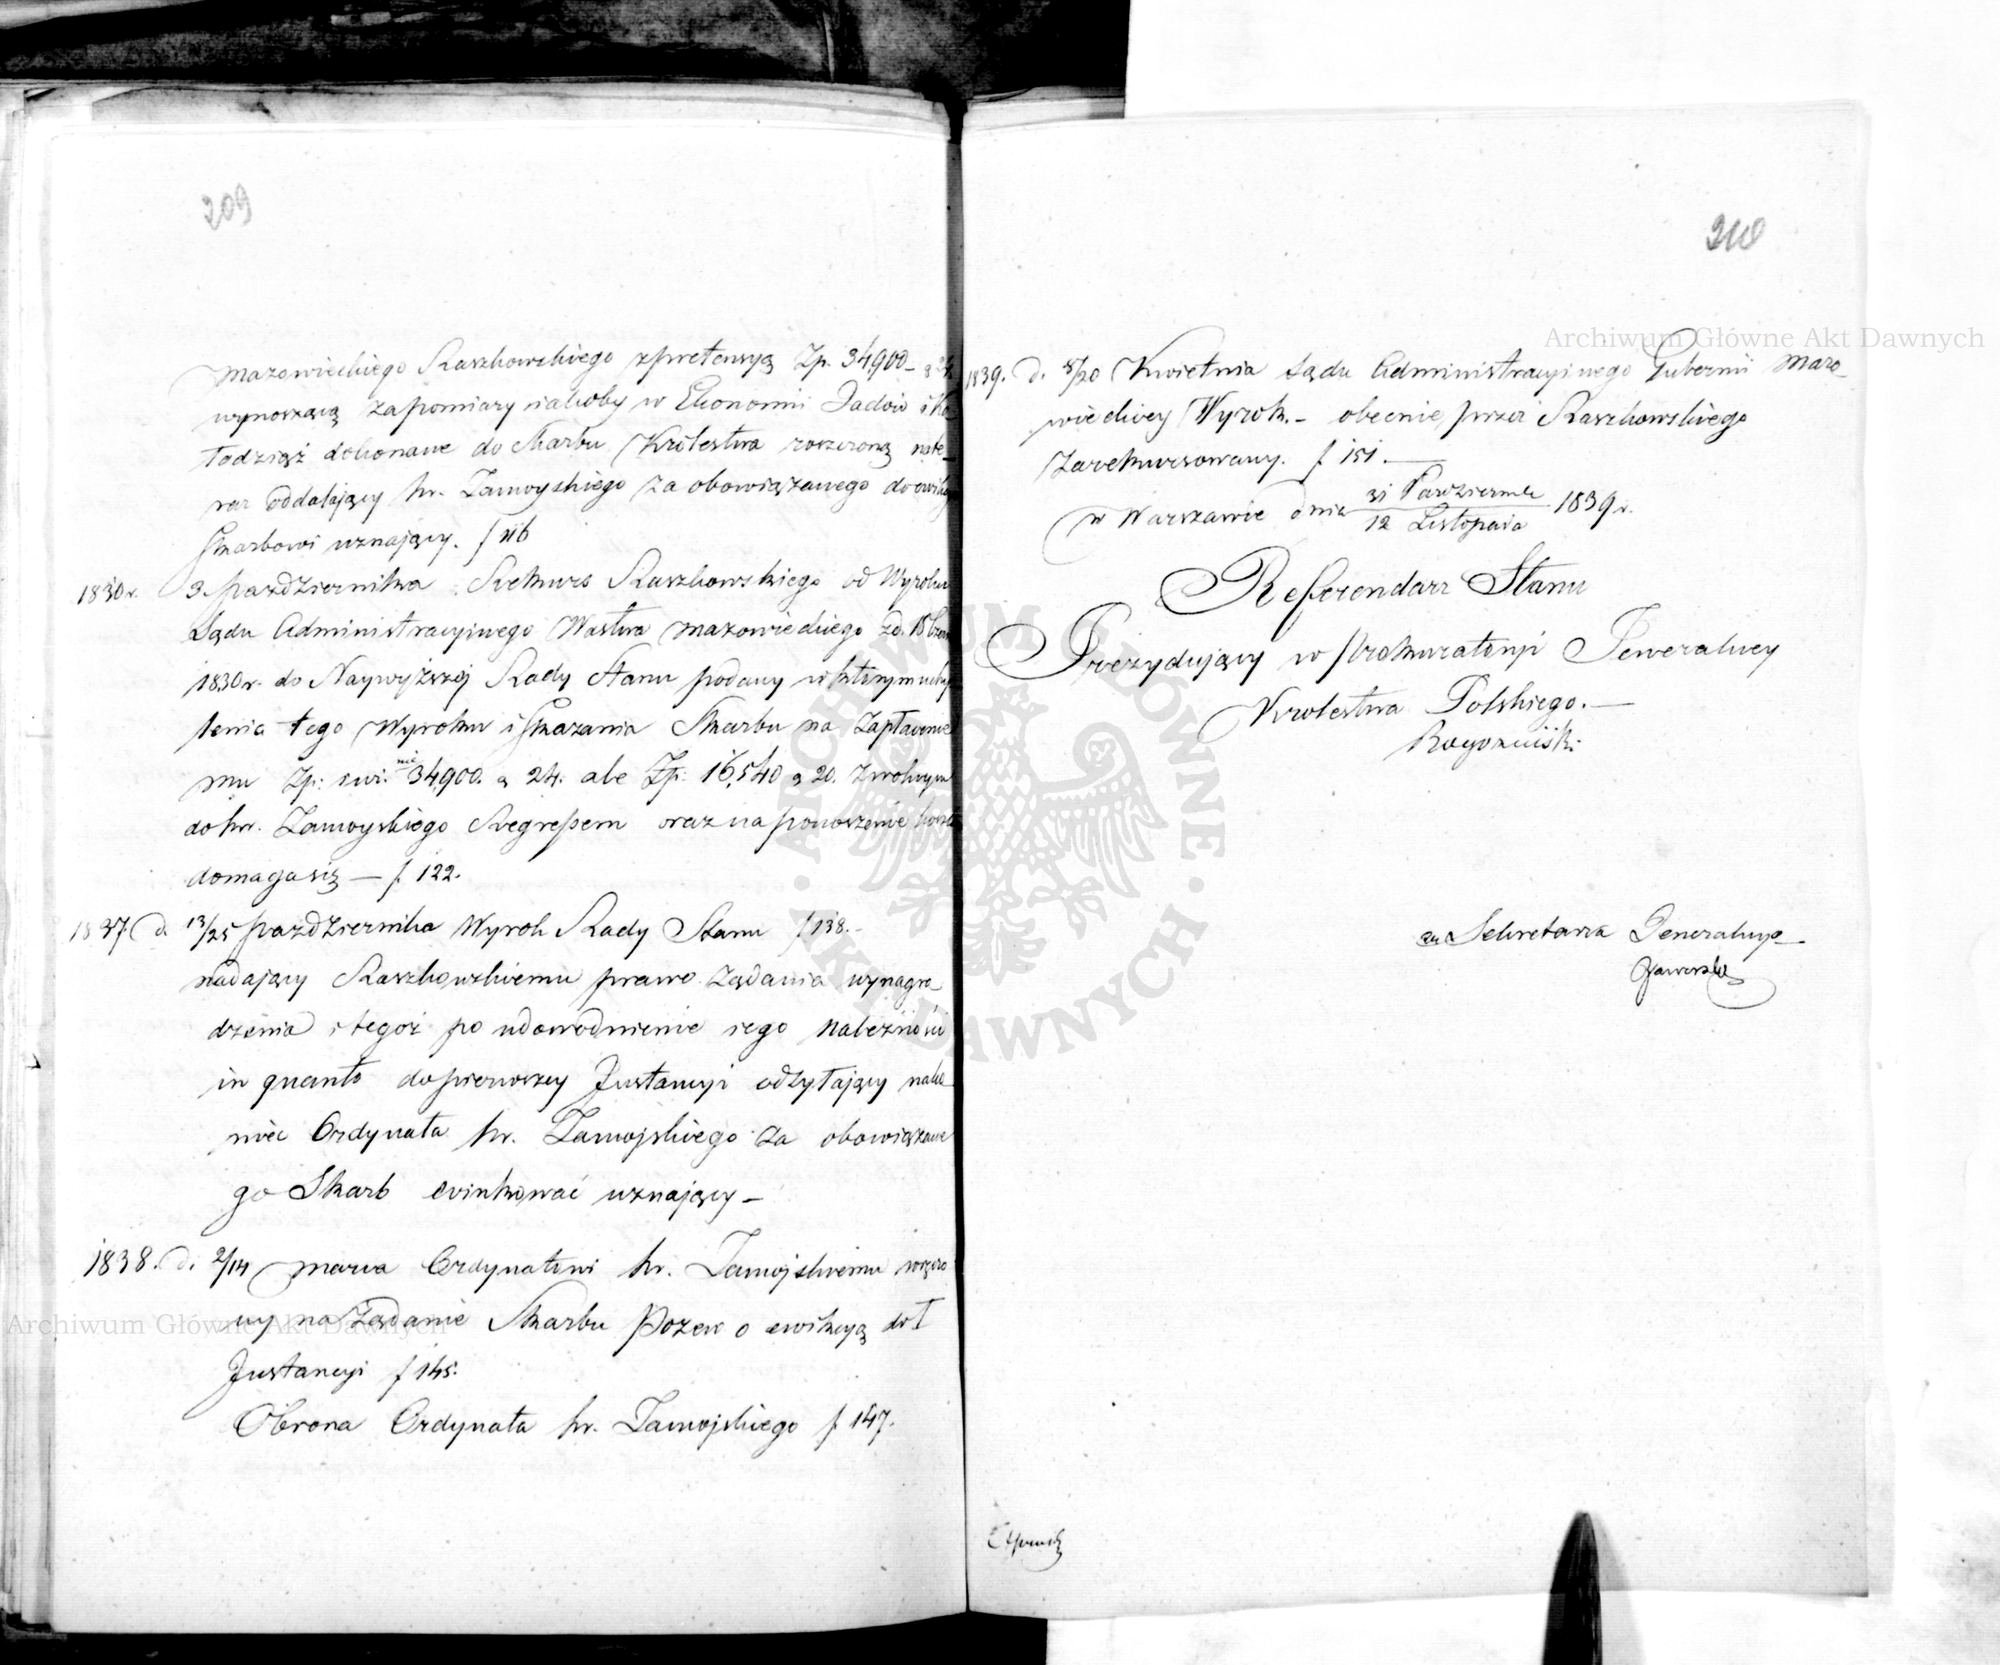 209
Mazowieckiego Raszkowskiego z pretensyą Zp. 34,900
wynoszącą za pomiary niakoby w Ekonomii Jadów i Ko-
łodziąż dokonane do Skarbu Królestwa rozcioną
oddalający hr. Zamoyskiego za obowiązanego do
Skarbowi uznający. f 116
1830 r. 3 października Rekurs Raszkowskiego od Wyroku
Sądu Administracyinego Wostwa Mazowieckiego z d. 18
1830 r. do Naywyższej Rady Stanu podany w którym uchy-
lenia tego Wyroku i skazania Skarbu na zapłacenie
mu Zp: 34,900. g 24. abo Zp: 16,540 g 20. z wolnym
do hr. Zamoyskiego Regressem oraz na ponoszenie
domaga się — f. 122.
1837 d. 13/25 października Wyrok Rady Stanu f 138.-
nadający Raszkowskiemu prawo żądania wynagro-
dzenia i tegoż po udowodnienie iego należności
in quanto do pierwszey Instancyi odsyłający nako-
niec Ordynata hr. Zamojskiego za obowiązane
go Skarb ewinkować uznający –
1838. d. 2/14 marca Ordynatowi hr. Zamojskiemu
ny na żądanie Skarbu Pozew o ewikcyą do I
Instancyi f 145.
Obrona Ordynata hr. Zamojskiego f. 147.
210
1839. d. 8/20 Kwietnia Sądu Administracyinego Gubernii Mazo-
wieckiey Wyrok. – obecnie przez Raszkowskiego
zarekursowany. f 151. —
w Warszawie dnia 31 Października / 12 Listopada 1839 r.
Referendarz Stanu
Prezydujący w Prokuratoryi Generalney
Królestwa Polskiego. —
za Sekretarza Generalnego
Archiwum Główne Akt Dawnych
Archiwum Główne Akt Dawnych
ARCHIWUM GŁÓWNE · AKT DAWNYCH ·